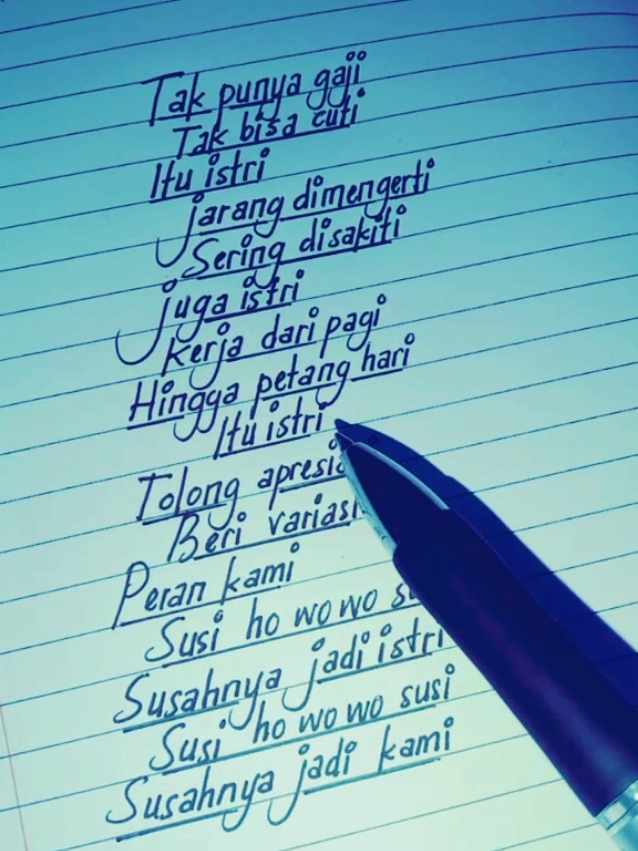 Tak punya gaji
Tak bisa cuti
Itu istri
jarang dimengerti
Sering disakiti
juga istri
kerja dari pagi
Hingga petang hari
Itu istri
Tolong
Beri variasi
Peran kami
Susi ho wo wo
Susahnya jadi istri
Susi ho wo wo susi
Susahnya jadi kami